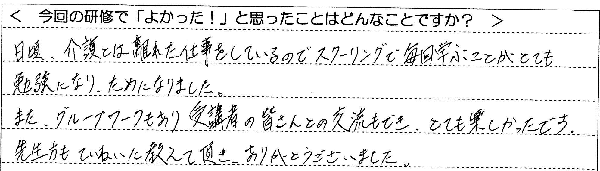 < 今回の研修で「よかった！」と思ったことはどんなことですか？ >
日頃、介護とは離れた仕事をしているのでスクーリングで毎回学ぶことがとても
勉強になり、ためになりました。
また、グループワークもあり受講者の皆さんとの交流もでき、とても楽しかったです。
先生方もていねいに教えて頂き、ありがとうございました。